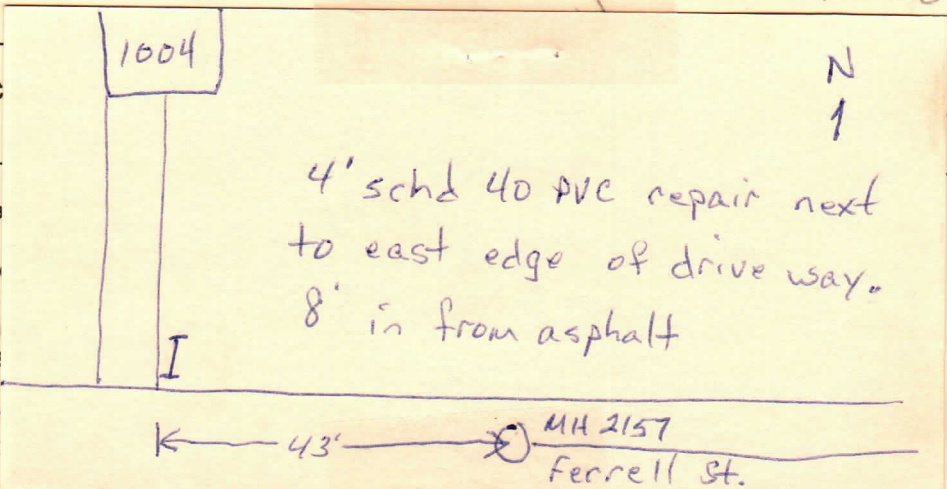 1004
N
4' schd 40 PVC repair next
to east edge of drive way.
8' in from asphalt
43'
MH 2157
Ferrell St.